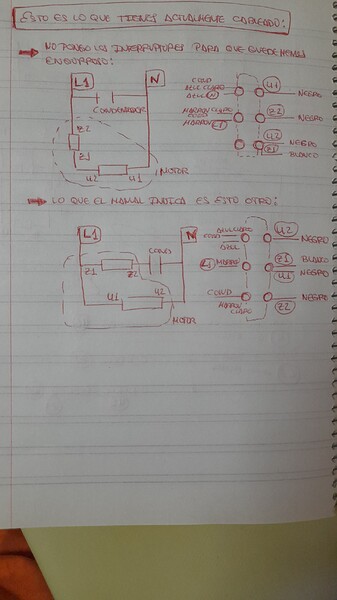 ESTO ES LO QUE TIENES ACTUALMENTE CABLEADO:
NO PONGO LOS INTERRUPTORES PARA QUE QUEDE MENOS
ENGORROSO:
L1 N
CONDENSADOR
Z2
Z1
U2 U1
MOTOR
COND
AZUL CLARO
AZUL N
MARRON CLARO
COND
MARRON L1
U1
NEGRO
Z2
NEGRO
U2
NEGRO
Z1
BLANCO
LO QUE EL MANUAL INDICA ES ESTO OTRO:
L1 N
COND
Z1 Z2
U1 U2
MOTOR
AZUL CLARO
COND
AZUL
L1 MARRON
COND
MARRON
CLARO
U2
NEGRO
Z1
BLANCO
U1
NEGRO
Z2
NEGRO